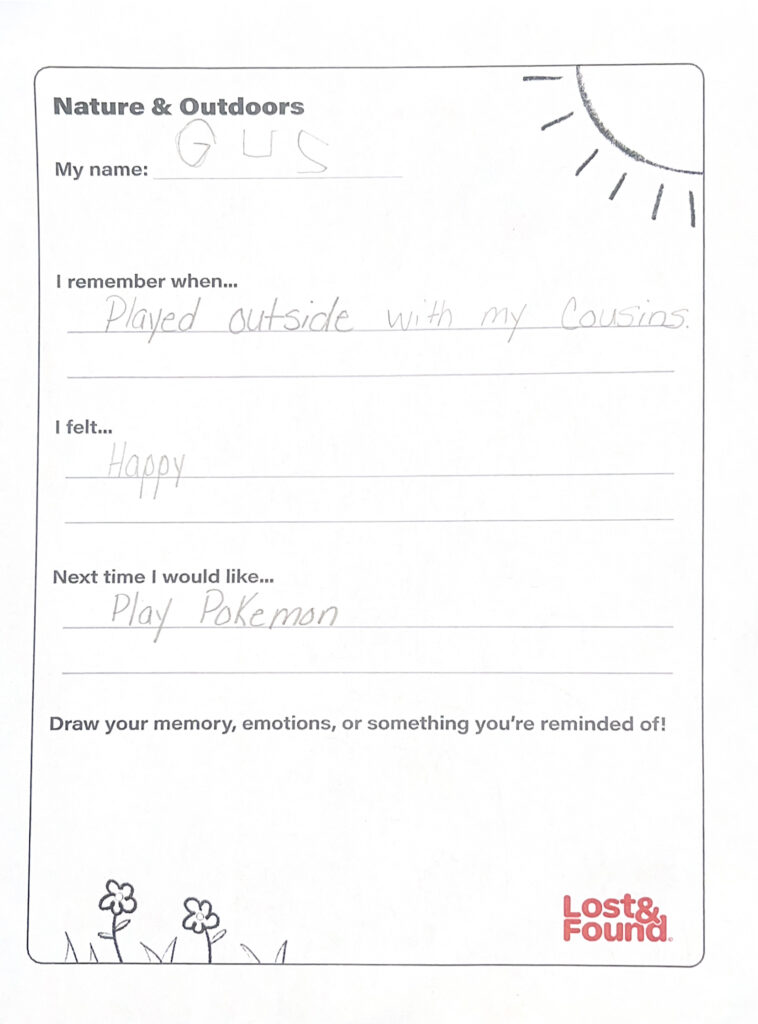 Nature & Outdoors
My name: GUS
I remember when...
Played outside with my Cousins.
I felt...
Happy
Next time I would like...
Play Pokemon
Draw your memory, emotions, or something you're reminded of!
Lost&
Found.